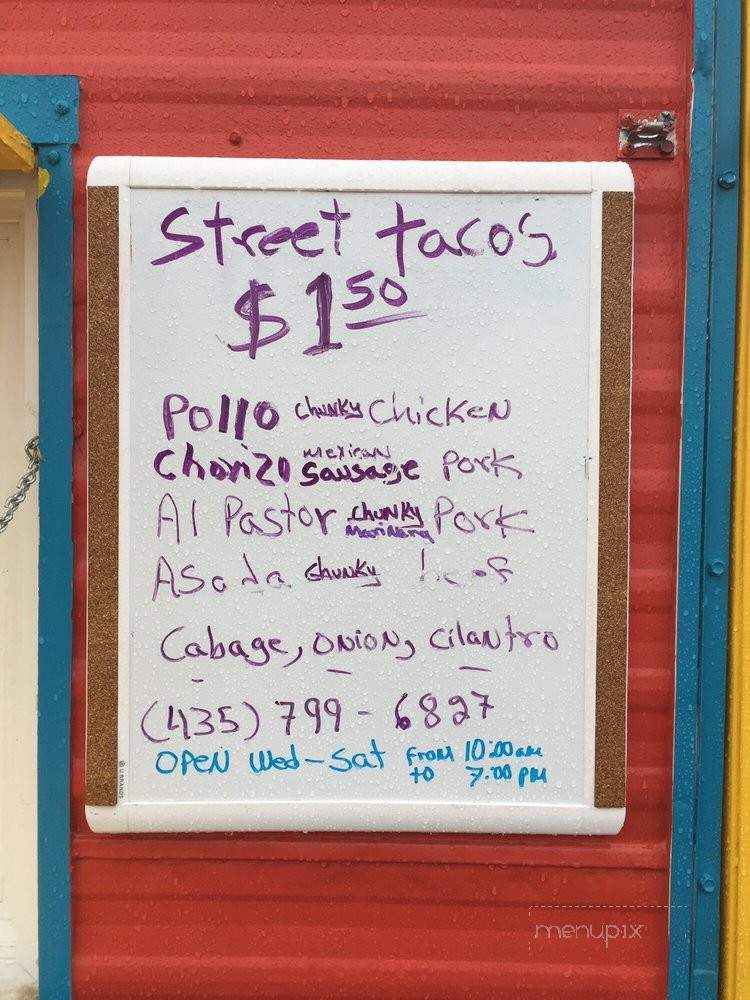 Street taco's
$1.50
Pollo chunky Chicken
Chorizo mexican sausage Pork
Al Pastor chunky Marinary Pork
Asada chunky beef
Cabage, onion, cilantro
(435) 799-6827
OPEN Wed-Sat from 10:00 am
to 7:00 pm
U BRANDS
menupix